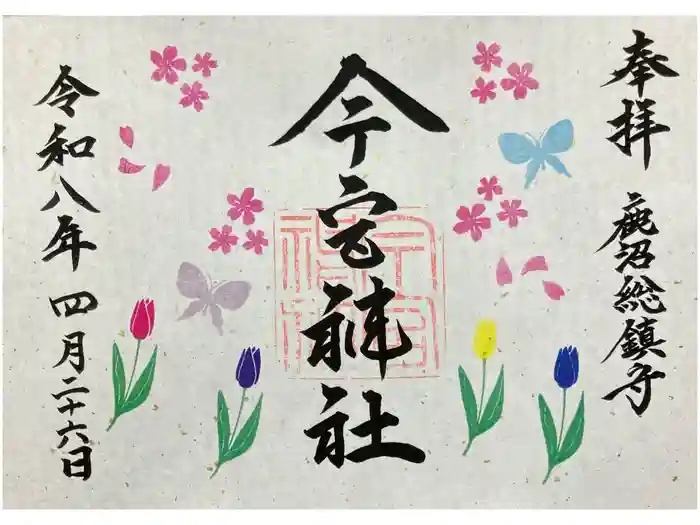 奉拝
鹿沼総鎮守
今宮神社
令和八年
四月二十六日